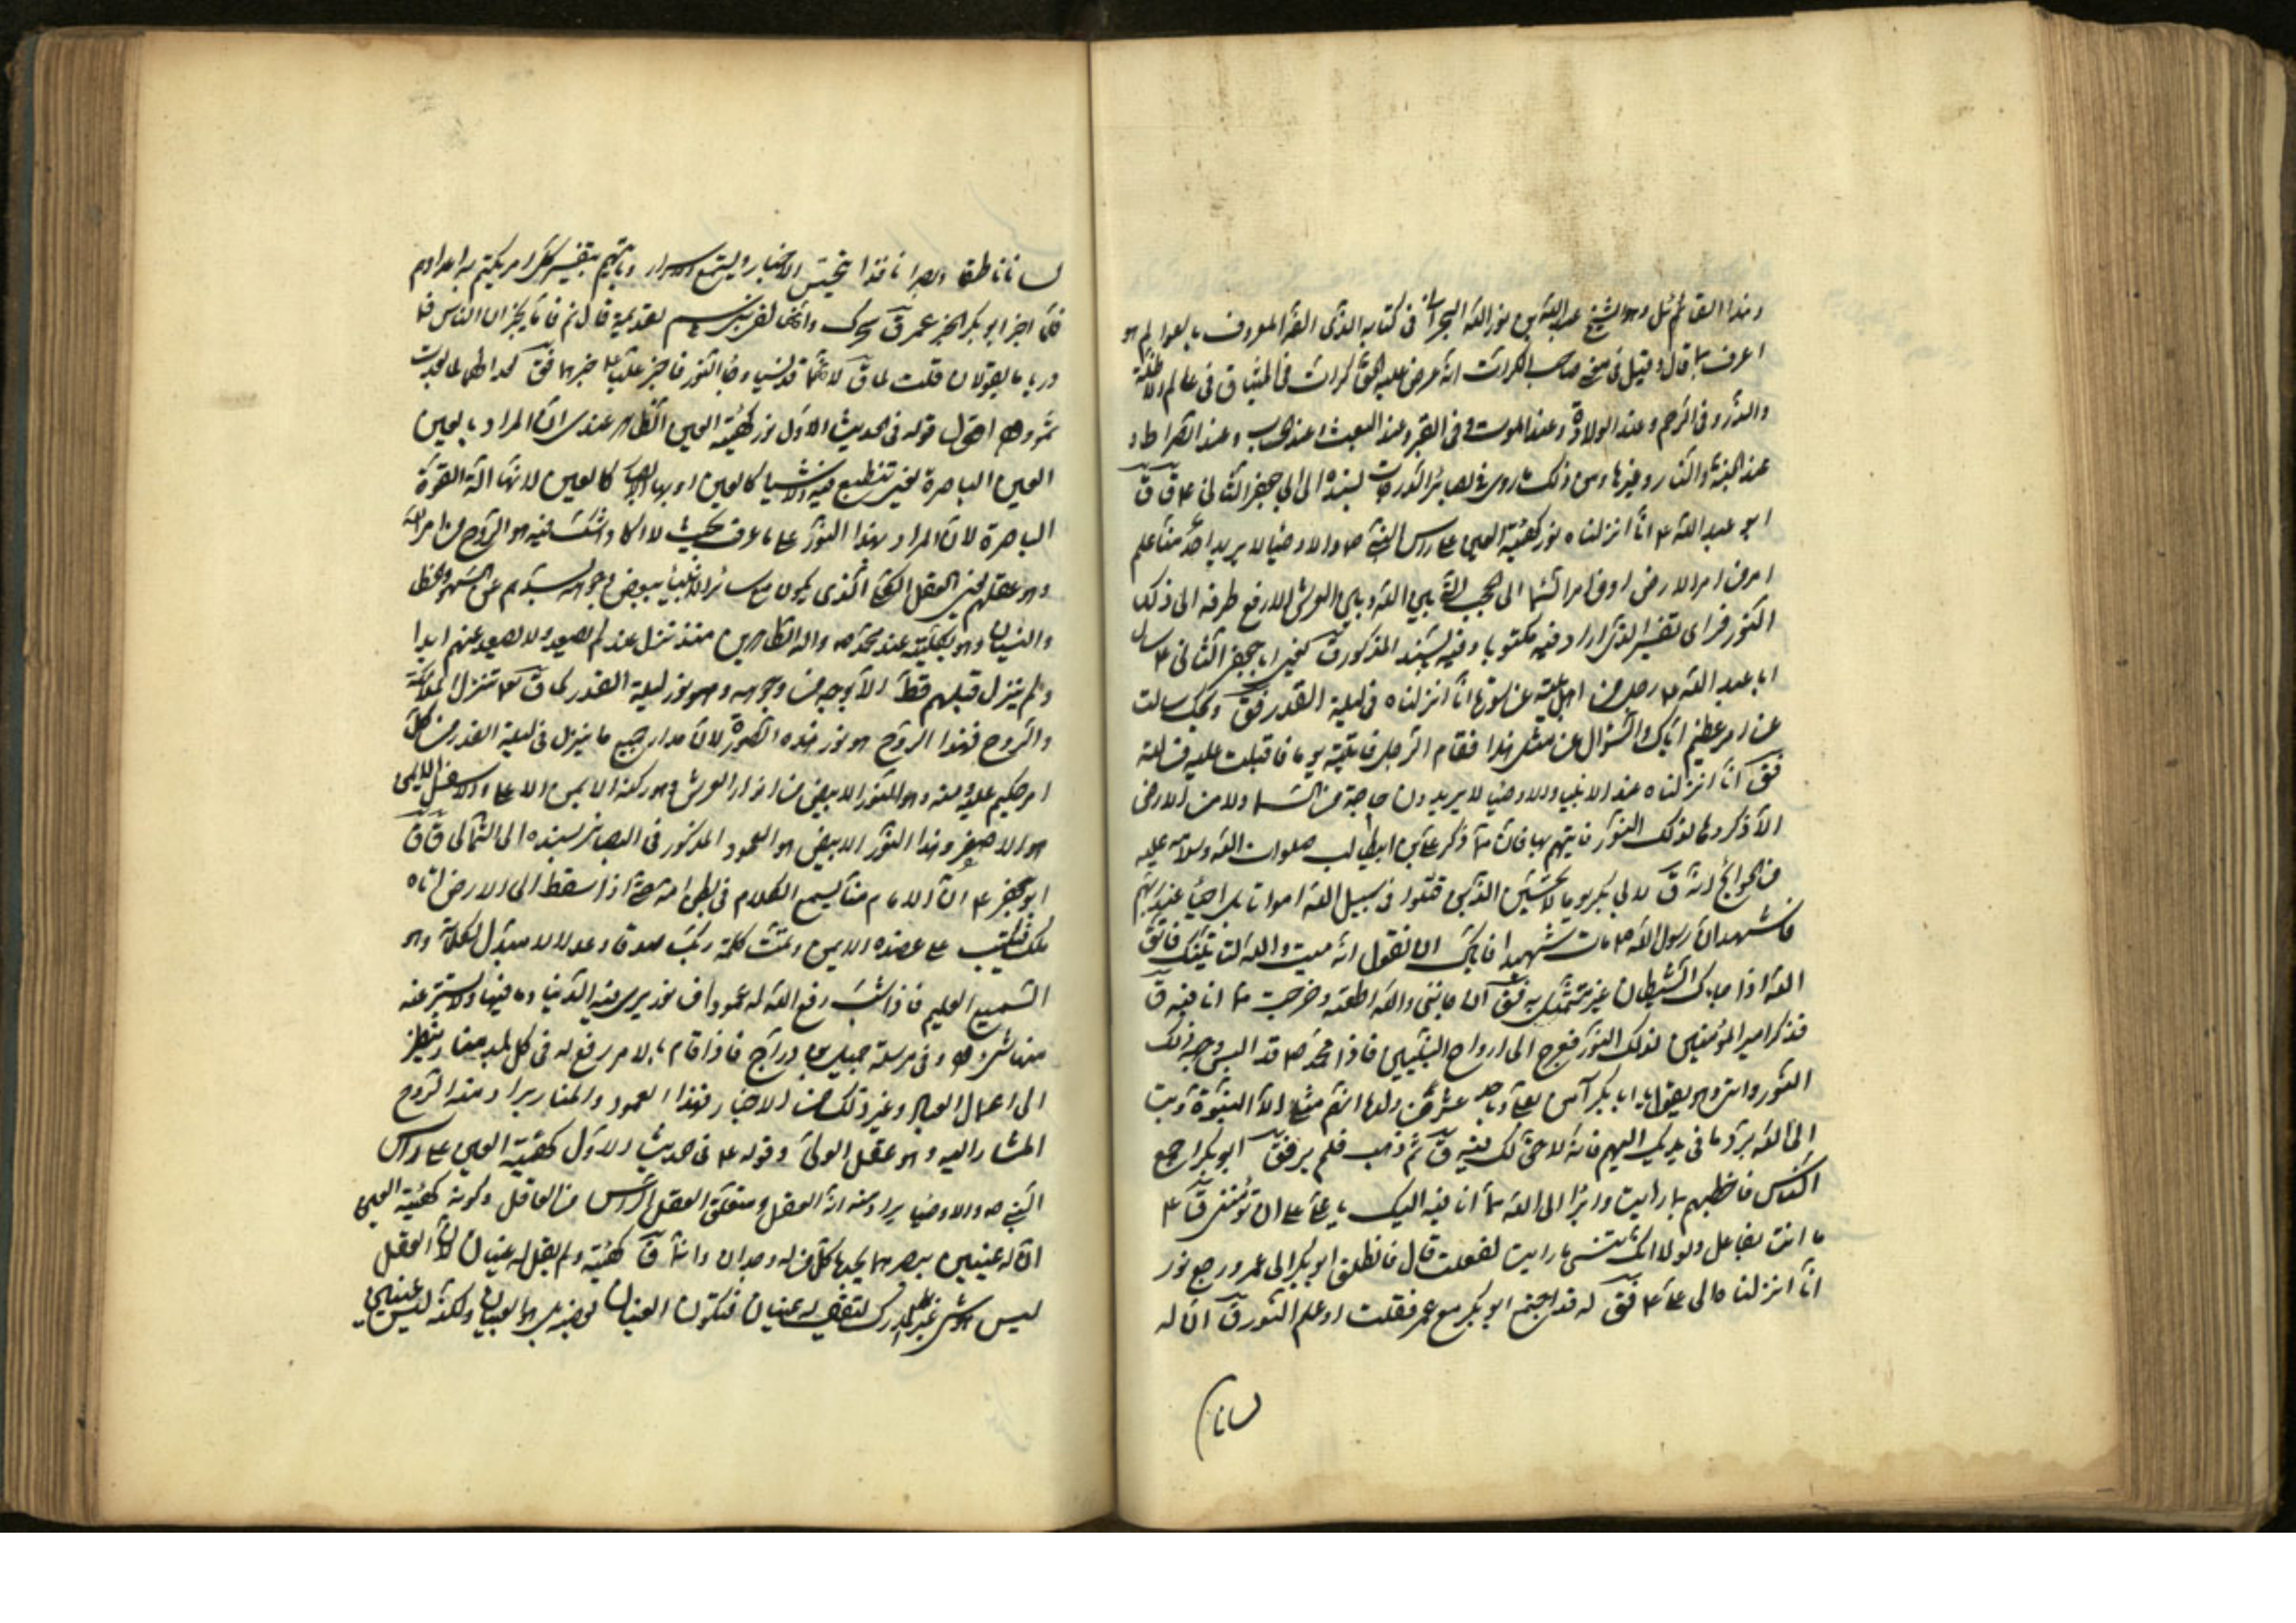 وهذا القائل هو الشيخ عبد الله بن نور الله البحراني في كتابه الذي الفه المعروف بالعوالم هو
اعرف بما قال وقيل في صاحب الكرات انه عرض عليه الحق كرات في الميثاق في عالم الاظلة
والذر وفي الرحم وعند الولادة وعند الموت وفي القبر وعند البعث وعند الحساب وعند الصراط و
عند الجنة والنار وغيرها ومن ذلك ما روى في بصائر الدرجات بسنده الى ابي جعفر الثاني ع ق ق
ابو عبد الله ع انا انزلناه نور كهيئة العين على راس النبي ص والاوصيا لا يريد احد منا علم
امر من امر الارض او من امر السما الى الحجب التي بين الله وبين العرش الا رفع طرفه الى ذلك
النور فراى تفسير الذي اراد فيه مكتوبا وفيه بسنده المذكور ق يعني ابا جعفر الثاني ع سال
ابا عبد الله ع رجل من اهل بيته عن سورة انا انزلناه في ليلة القدر فق ويلك سالت
عن امر عظيم اياك والسؤال عن مثل هذا فقام الرجل فاتيته يوما فاقبلت عليه فسالته
فق انا انزلناه عند الانبيا والاوصيا لا يريدون حاجة من السما ولا من الارض
الا ذكروها لذلك النور فاتيهم بها فان مما ذكر علي بن ابيطالب صلوات الله وسلامه عليه
من الحوائج انه ق لابي بكر يوما لا تحسبن الذين قتلوا في سبيل الله امواتا بل احيا عند ربهم
فاشهد ان رسول الله ص مات شهيدا فاياك ان تقول انه ميت والله لياتينك فاتق
الله اذا جاءك الشيطان غير متمثل به فق ان جاءني والله اطعته وخرجت مما انا فيه ق
فذكر امير المؤمنين لذلك النور فعرج الى ارواح النبيين فاذا محمد ص قد البس وجهه ذلك
النور واتى وهو يقول يا ابا بكر آمن بعلي وباحد عشر من ولده انهم مثلي الا النبوة وتب
الى الله برد ما في يديك اليهم فانه لا حق لك فيه ق ثم ذهب فلم ير فق ابو بكر اجمع
الناس فاخطبهم بما رايت وابرأ الى الله مما انا فيه اليك يا علي على ان تؤمنني ق ع
ما انت بفاعل ولولا انك تنسى ما رايت لفعلت قال فانطلق ابو بكر الى عمر ورجع نور
انا انزلناه الى علي ع فق له قد اجتمع ابو بكر مع عمر فقلت او علم النور ق ان له
لسانا
لسانا ناطقا وبصرا نافذا يتجسس الاخبار ويستمع الاسرار وياتيهم بتفسير كل امر يكتتم به اعداؤهم
فلما اخبر ابو بكر الخبر عمر ق سحرك وانها لفي بني هاشم لقديمة قال ثم قاما يخبران الناس فما
دريا ما يقولان قلت لماذا ق لانهما قد نسياه وجا النور فاخبر عليا ع خبرهما فق بعدا لهما كما بعدت
ثمود اقول قوله في الحديث الاول نور كهيئة العين الظاهر عندي ان المراد بالعين
العين الباصرة يعني تنطبع فيه الاشيا كالعين او بها الابصار كالعين لانها آلة القوة
الباصرة لان المراد بهذا النور على ما عرف بحيث لا اكاد اشك فيه هو الروح من امر الله
وهو عقلهم يعني العقل الكلي الذي يكون مع سائر الانبيا ببعض وجوهه يسددهم عن السهو والخطا
والنسيان وهو بكليته عند محمد ص واله الطاهرين منذ نزل عندهم لم يصعد ولا يصعد عنهم ابدا
ولم ينزل قبلهم قط الا بوجه من وجوهه وهو نور ليلة القدر كما ق تع تنزل الملائكة
والروح فهذا الروح هو نور هذه السورة لان مدار جميع ما ينزل في ليلة القدر من كل
امر حكيم عليه ومنه وهو النور الابيض من انوار العرش وهو ركنه الايمن الاعلى والاسفل الايمن
هو الاصفر وهذا النور الابيض هو العمود المذكور في البصائر بسنده الى الثمالي ق ق
ابو جعفر ع ان الامام منا ليسمع الكلام في بطن امه حتى اذا سقط الى الارض اتاه
ملك فيكتب على عضده الايمن وتمت كلمة ربك صدقا وعدلا لا مبدل لكلماته وهو
السميع العليم فاذا شب رفع الله له عمودا من نور يرى فيه الدنيا وما فيها ولا يستر عنه
منها شي وفي مرسلة جميل بن دراج فاذا قام بالامر رفع له في كل بلد منار ينظر
الى اعمال العباد وغير ذلك من الاخبار فهذا العمود والمنار يراد منه الروح
المشار اليه وهو عقل الولي وقوله ع في حديث الاول كهيئة العين على راس
النبي ص والاوصيا يراد منه انه العقل ومتعلق العقل الراس من العاقل وكونه كهيئة العين
ان له عينين يبصر بهما يجدها كل من له وجدان وانما ق كهيئة ولم يقل له عينان لان العقل
ليس هو شي غير المدرك ليقال له عينان فتكون العينان فيه بل هو العينان ولكنه ليس عينين